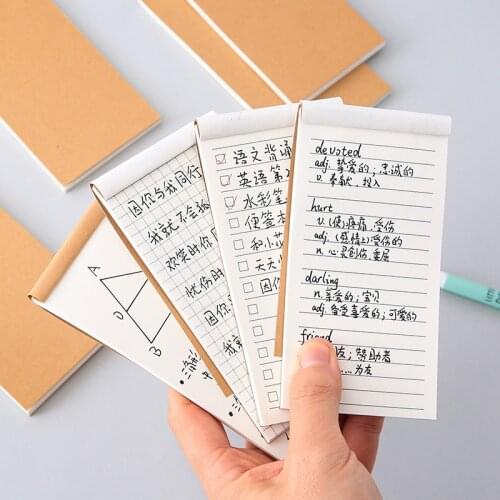 devoted
adj. 挚爱的；忠诚的
v. 奉献，投入
hurt
v. (使)疼痛，受伤
adj. (感情上)受伤的
n. 心灵创伤，委屈
darling
n. 亲爱的；宝贝
adj. 备受喜爱的；可爱的
friend
友；赞助者
……为友
语文背诵
英语第2
水彩笔
便签本
和小花
天天
因你
因你与我同行
我就不会孤
欢笑时你
忧伤时
因你
我就
A
D
B